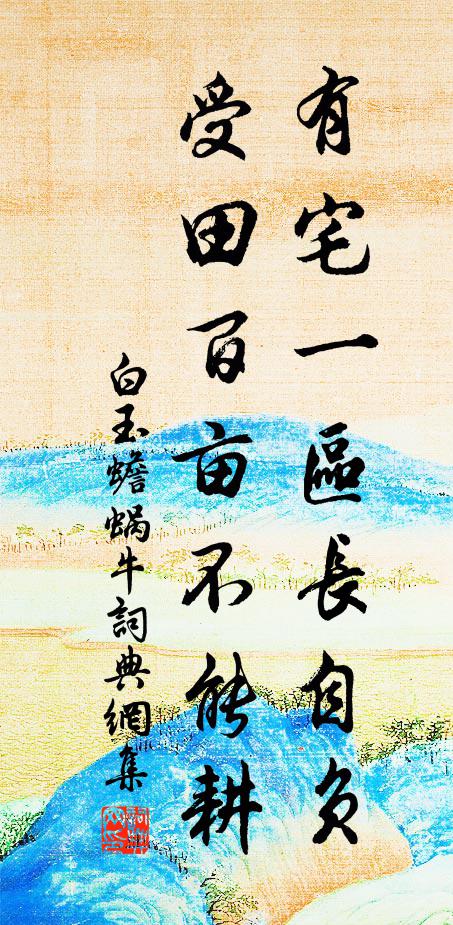 有宅一區長自負
受田百亩不能耕
白玉蟾蜗牛詞典網集